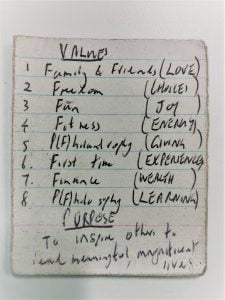 VALUES
1 Family & Friends (LOVE)
2 Freedom (CHOICES)
3 Fun (JOY)
4 Fitness (ENERGY)
5 P(F)hilanthrophy (GIVING)
6 First time (EXPERIENCES)
7. Finance (WEALTH)
8 P(F)hilosophy (LEARNING)
PURPOSE
To inspire others to
lead meaningful, magnificent
lives